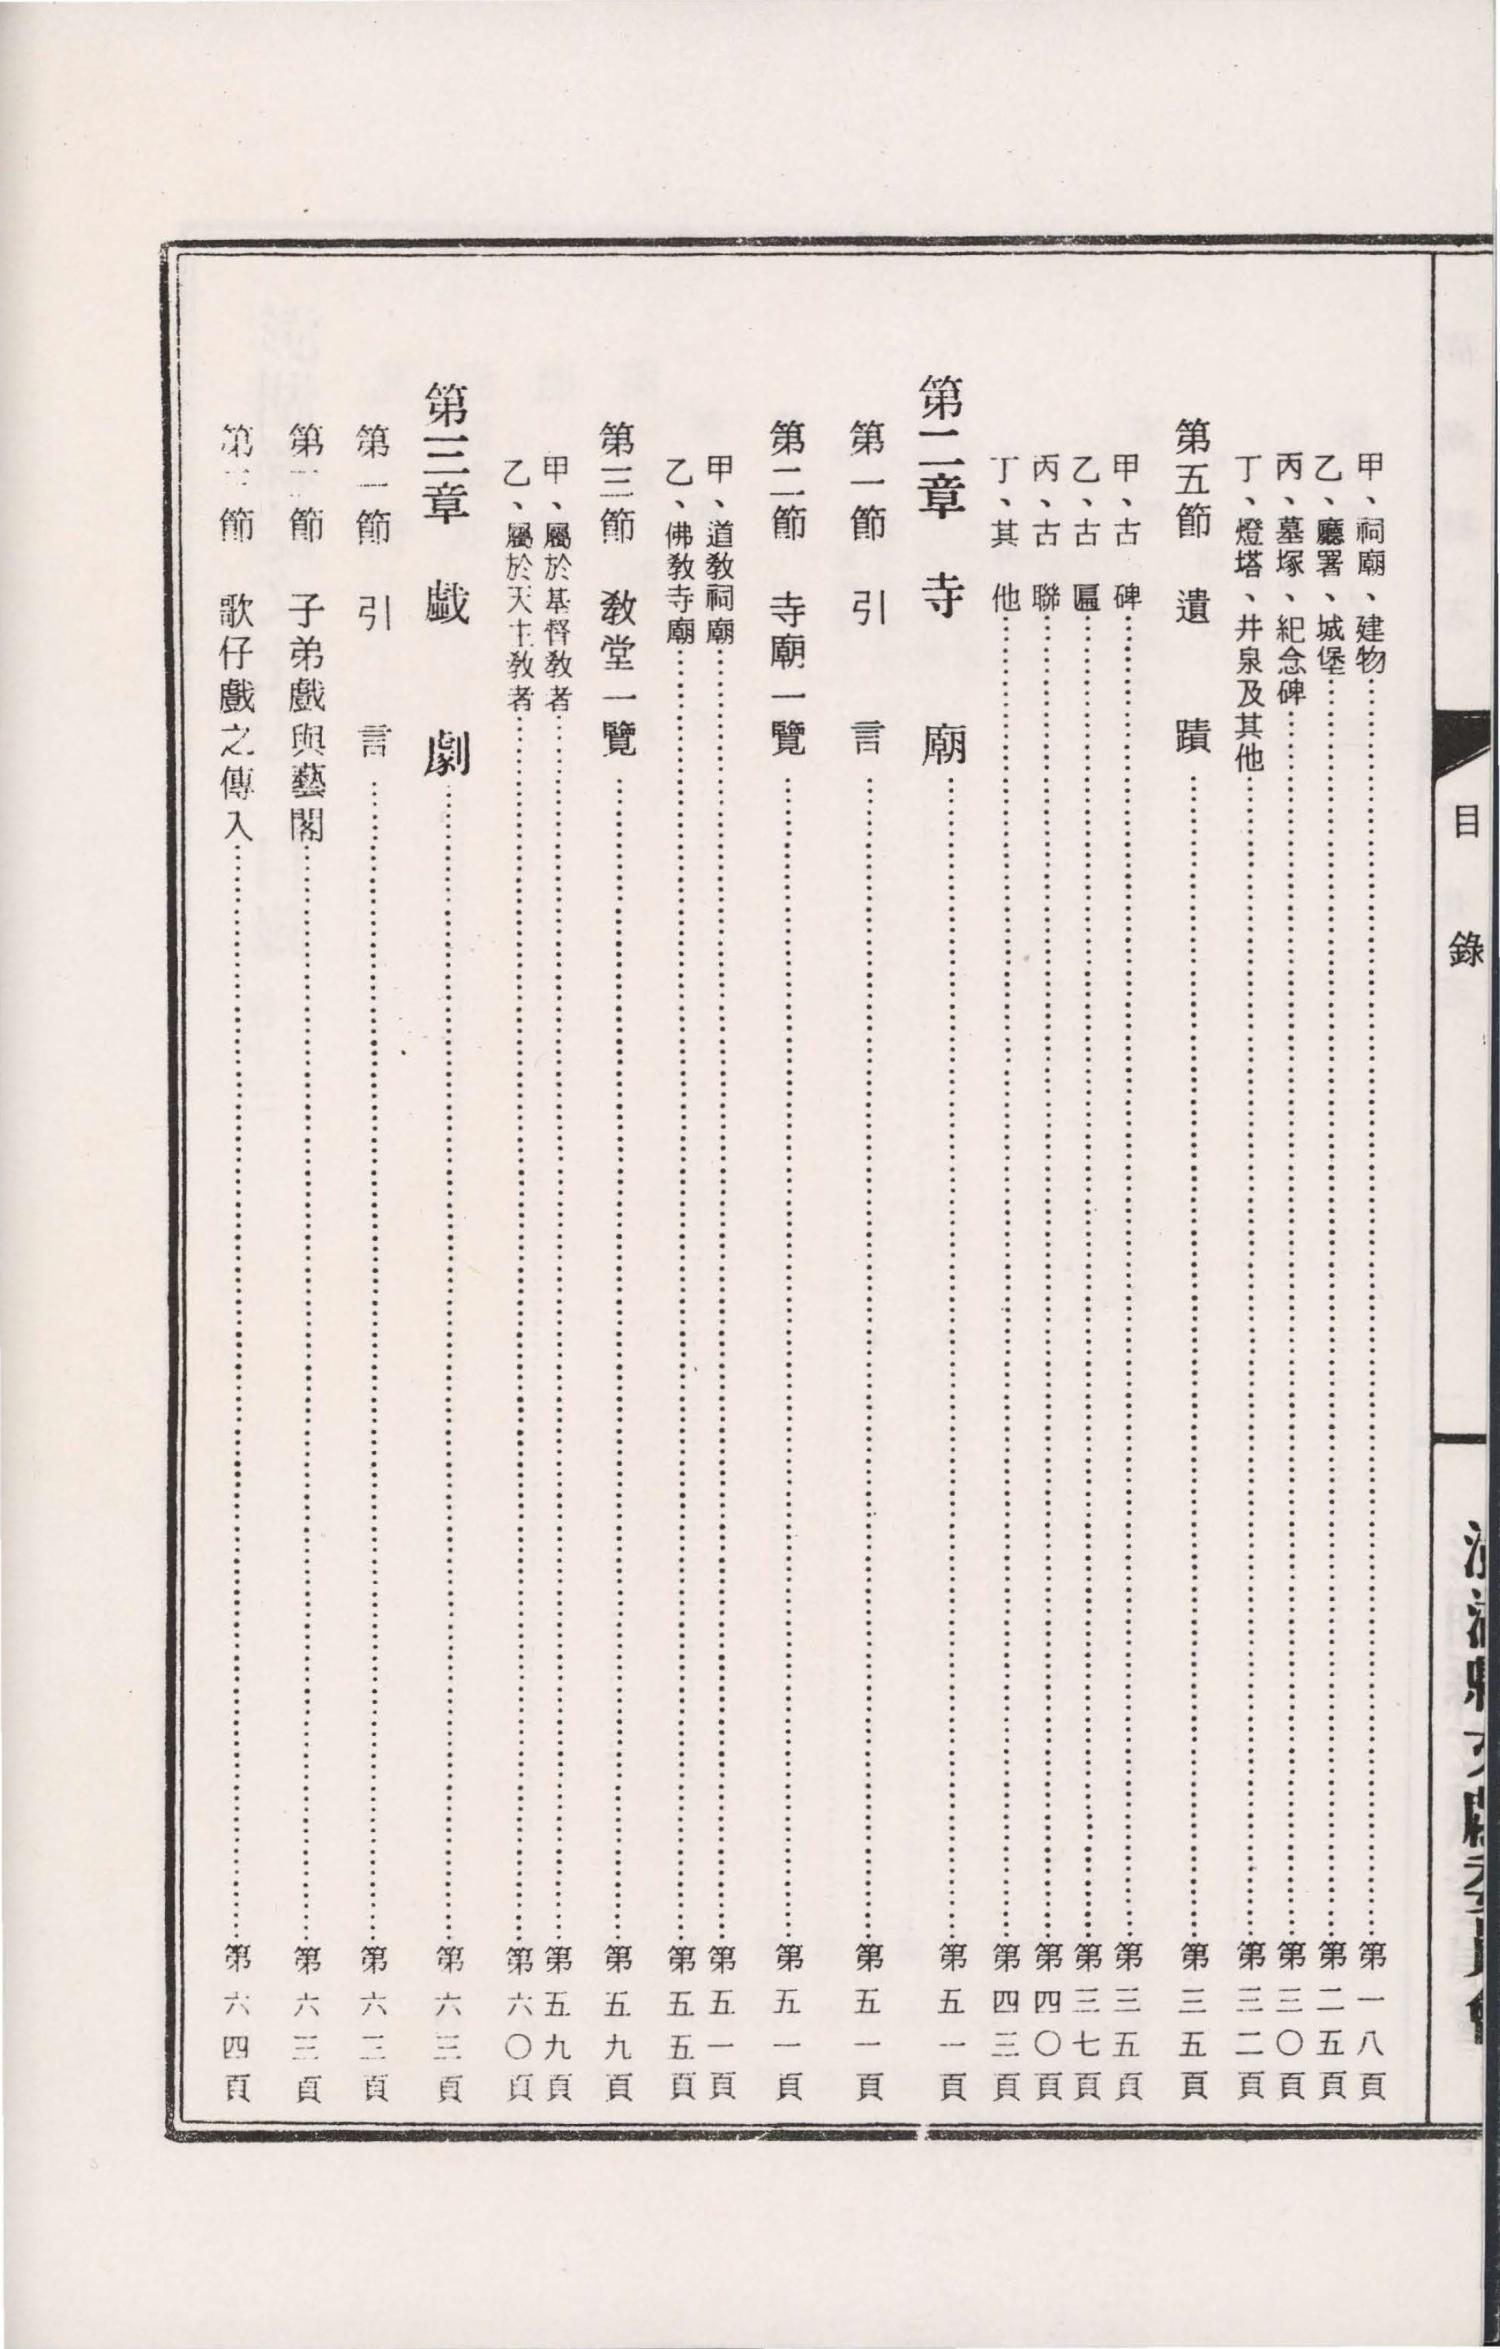 目錄
甲、祠廟、建物……第一八頁
乙、廳署、城堡……第二五頁
丙、墓塚、紀念碑……第三〇頁
丁、燈塔、井泉及其他……第三二頁
第五節 遺蹟……第三五頁
甲、古碑……第三五頁
乙、古匾……第三七頁
丙、古聯……第四〇頁
丁、其他……第四三頁
第二章 寺廟……第五一頁
第一節 引言……第五一頁
第二節 寺廟一覽……第五一頁
甲、道教祠廟……第五一頁
乙、佛教寺廟……第五五頁
第三節 教堂一覽……第五九頁
甲、屬於基督教者……第五九頁
乙、屬於天主教者……第六〇頁
第三章 戲劇……第六三頁
第一節 引言……第六三頁
第 節 子弟戲與藝閣……第六三頁
第 節 歌仔戲之傳入……第六四頁